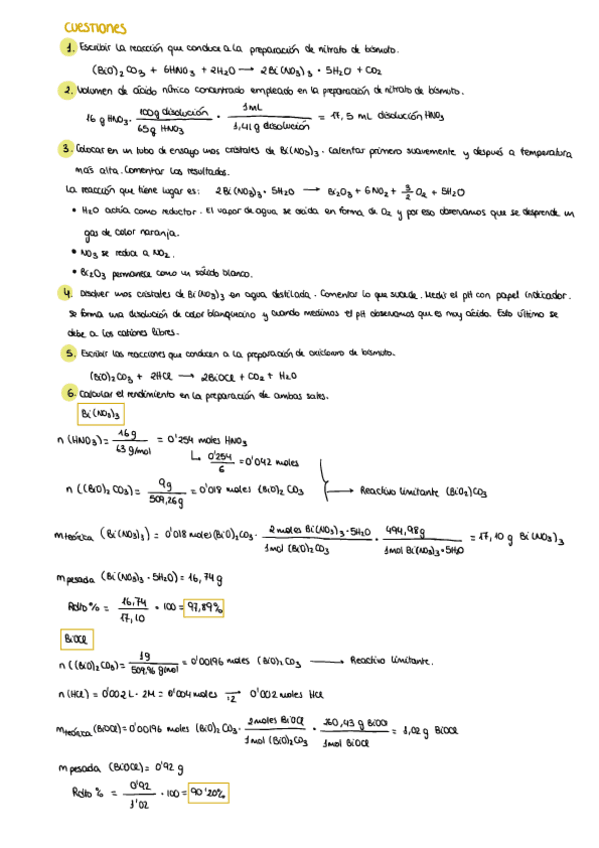 CUESTIONES
1. Escribir la reacción que conduce a la preparación de nitrato de bismuto.
(BiO)2CO3 + 6HNO3 + 2H2O → 2Bi(NO3)3 · 5H2O + CO2
2. Volumen de ácido nítrico concentrado empleado en la preparación de nitrato de bismuto.
16 g HNO3 · 100g disolución / 65g HNO3 · 1mL / 1,41g disolución = 17,5 mL disolución HNO3
3. Colocar en un tubo de ensayo unos cristales de Bi(NO3)3. Calentar primero suavemente y después a temperatura
más alta. Comentar los resultados.
La reacción que tiene lugar es: 2Bi(NO3)3 · 5H2O → Bi2O3 + 6NO2 + 3/2 O2 + 5H2O
• H2O actúa como reductor. El vapor de agua se oxida en forma de O2 y por eso observamos que se desprende un
gas de color naranja.
• NO3 se reduce a NO2.
• Bi2O3 permanece como un sólido blanco.
4. Disolver unos cristales de Bi(NO3)3 en agua destilada. Comentar lo que sucede. Medir el pH con papel indicador.
Se forma una disolución de color blanquecino y cuando medimos el pH observamos que es muy ácido. Esto último se
debe a los cationes libres.
5. Escribir las reacciones que conducen a la preparación de oxicloruro de bismuto.
(BiO)2CO3 + 2HCl → 2BiOCl + CO2 + H2O
6. Calcular el rendimiento en la preparación de ambas sales.
Bi(NO3)3
n (HNO3) = 16g / 63 g/mol = 0'254 moles HNO3
0'254 / 6 = 0'042 moles
n ((BiO)2CO3) = 9g / 509,26g = 0'018 moles (BiO)2CO3 → Reactivo limitante (BiO2)CO3
m teórica (Bi(NO3)3) = 0'018 moles (BiO)2CO3 · 2 moles Bi(NO3)3·5H2O / 1mol (BiO)2CO3 · 494,98g / 1mol Bi(NO3)3·5H2O = 17,10 g Bi(NO3)3
m pesada (Bi(NO3)3 · 5H2O) = 16,74 g
Rdto % = 16,74 / 17,10 · 100 = 97,89%
BiOCl
n ((BiO)2CO3) = 1g / 509,96 g/mol = 0'00196 moles (BiO)2CO3 → Reactivo limitante.
n (HCl) = 0'002 L · 2M = 0'004 moles → :2 0'002 moles HCl
m teórica (BiOCl) = 0'00196 moles (BiO)2CO3 · 2moles BiOCl / 1mol (BiO)2CO3 · 260,43 g BiOCl / 1mol BiOCl = 1,02 g BiOCl
m pesada (BiOCl) = 0'92 g
Rdto % = 0'92 / 1'02 · 100 = 90'20%